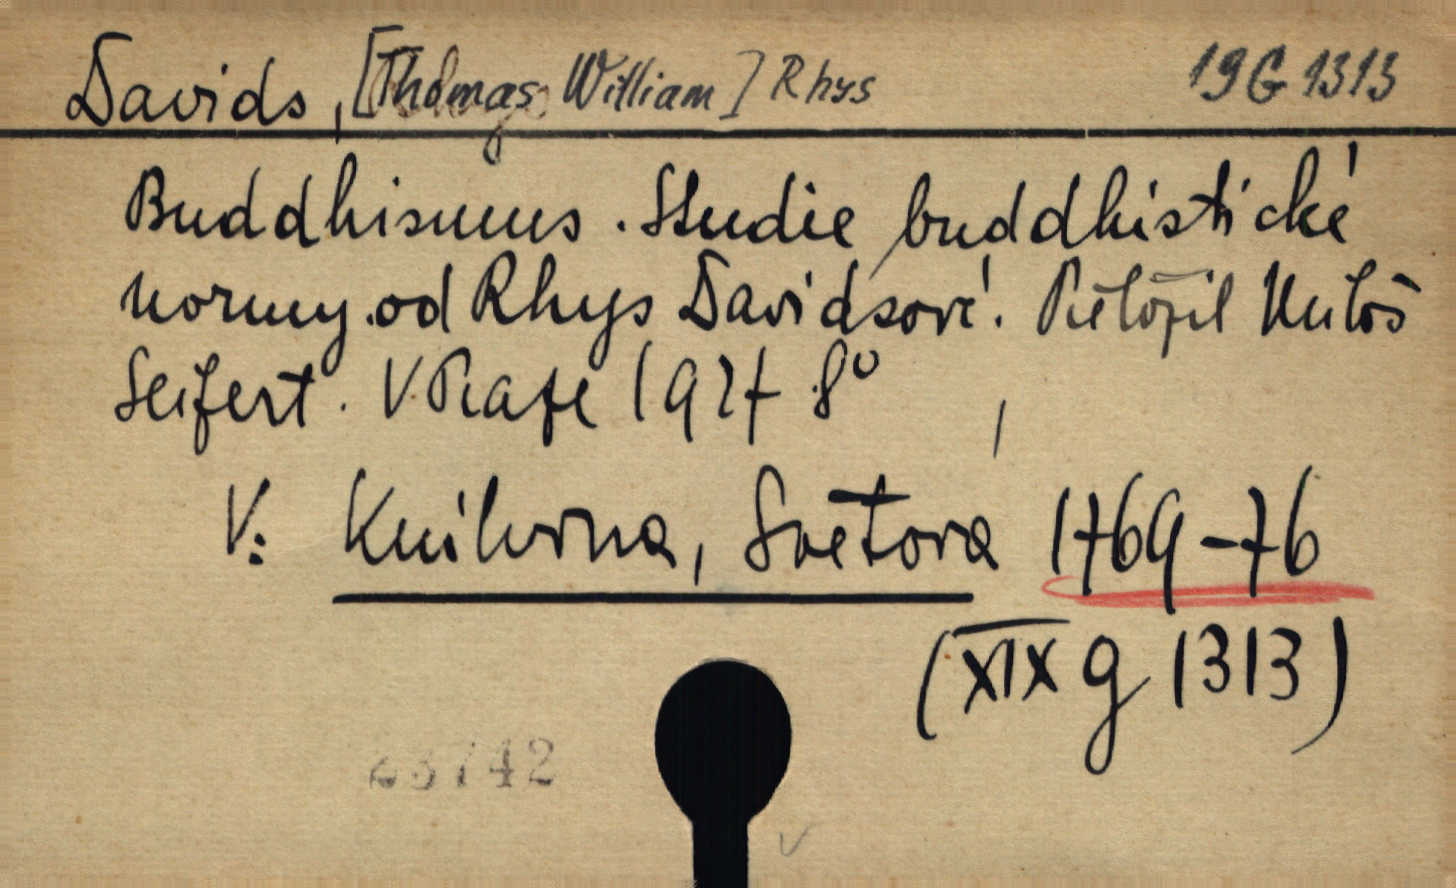 Davids, [Thomas William] Rhys 19 G 1313
Buddhismus. Studie buddhistické
normy. od Rhys Davidsové. Přeložil Miloš
Seifert. V Praze 1927 8°
V: Knihovna, Světová 1769-76
(XIX g 1313)
23742